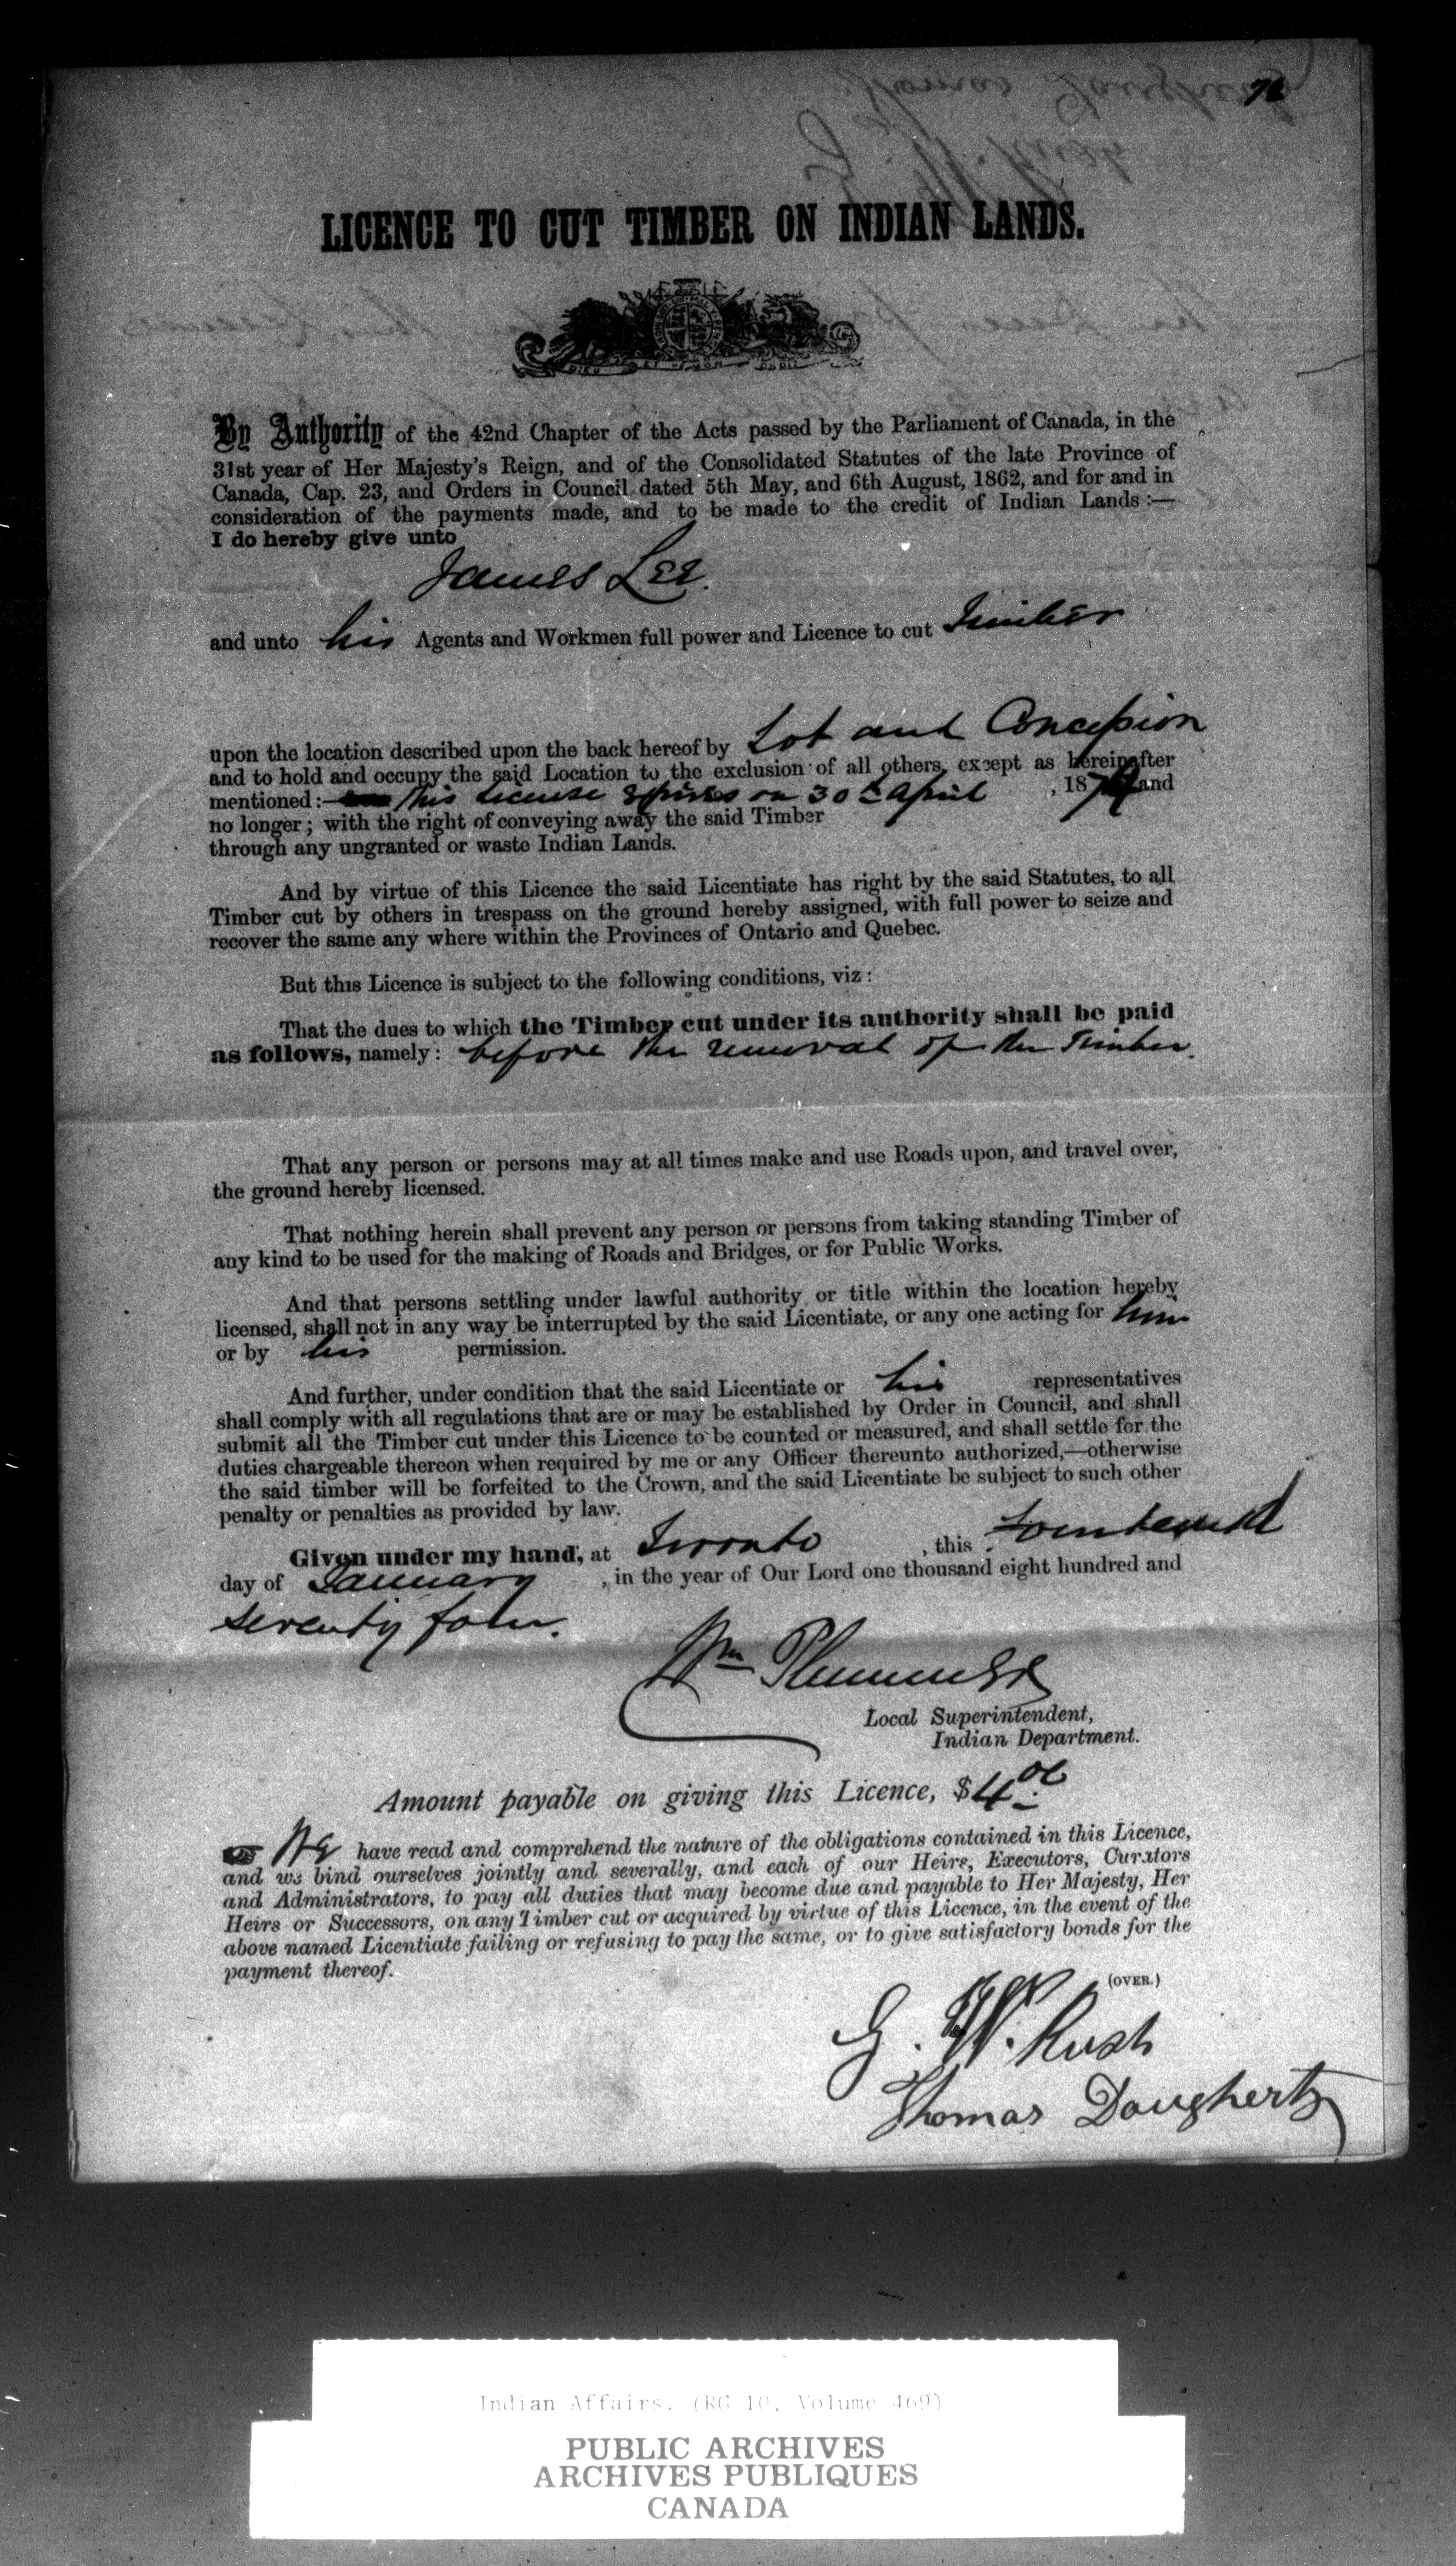 76
LICENCE TO CUT TIMBER ON INDIAN LANDS.
DIEU ET MON DROIT
By Authority of the 42nd Chapter of the Acts passed by the Parliament of Canada, in the
31st year of Her Majesty's Reign, and of the Consolidated Statutes of the late Province of
Canada, Cap. 23, and Orders in Council dated 5th May, and 6th August, 1862, and for and in
consideration of the payments made, and to be made to the credit of Indian Lands :—
I do hereby give unto
James Lee.
and unto his Agents and Workmen full power and Licence to cut Timber
upon the location described upon the back hereof by Lot and Concession
and to hold and occupy the said Location to the exclusion of all others, except as hereinafter
mentioned :— This License Expires on 30th April , 1874 and
no longer ; with the right of conveying away the said Timber
through any ungranted or waste Indian Lands.
And by virtue of this Licence the said Licentiate has right by the said Statutes, to all
Timber cut by others in trespass on the ground hereby assigned, with full power to seize and
recover the same any where within the Provinces of Ontario and Quebec.
But this Licence is subject to the following conditions, viz :
That the dues to which the Timber cut under its authority shall be paid
as follows, namely : before the removal of the Timber.
That any person or persons may at all times make and use Roads upon, and travel over,
the ground hereby licensed.
That nothing herein shall prevent any person or persons from taking standing Timber of
any kind to be used for the making of Roads and Bridges, or for Public Works.
And that persons settling under lawful authority or title within the location hereby
licensed, shall not in any way be interrupted by the said Licentiate, or any one acting for him
or by his permission.
And further, under condition that the said Licentiate or his representatives
shall comply with all regulations that are or may be established by Order in Council, and shall
submit all the Timber cut under this Licence to be counted or measured, and shall settle for the
duties chargeable thereon when required by me or any Officer thereunto authorized,—otherwise
the said timber will be forfeited to the Crown, and the said Licentiate be subject to such other
penalty or penalties as provided by law.
Given under my hand, at Toronto , this fourteenth
day of January , in the year of Our Lord one thousand eight hundred and
seventy four.
Wm Plummer
Local Superintendent,
Indian Department.
Amount payable on giving this Licence, $4.00
We have read and comprehend the nature of the obligations contained in this Licence,
and we bind ourselves jointly and severally, and each of our Heirs, Executors, Curators
and Administrators, to pay all duties that may become due and payable to Her Majesty, Her
Heirs or Successors, on any Timber cut or acquired by virtue of this Licence, in the event of the
above named Licentiate failing or refusing to pay the same, or to give satisfactory bonds for the
payment thereof.
(OVER.)
G. W. Rush
Thomas Daugherty
Indian Affairs. (RG 10, Volume 469)
PUBLIC ARCHIVES
ARCHIVES PUBLIQUES
CANADA